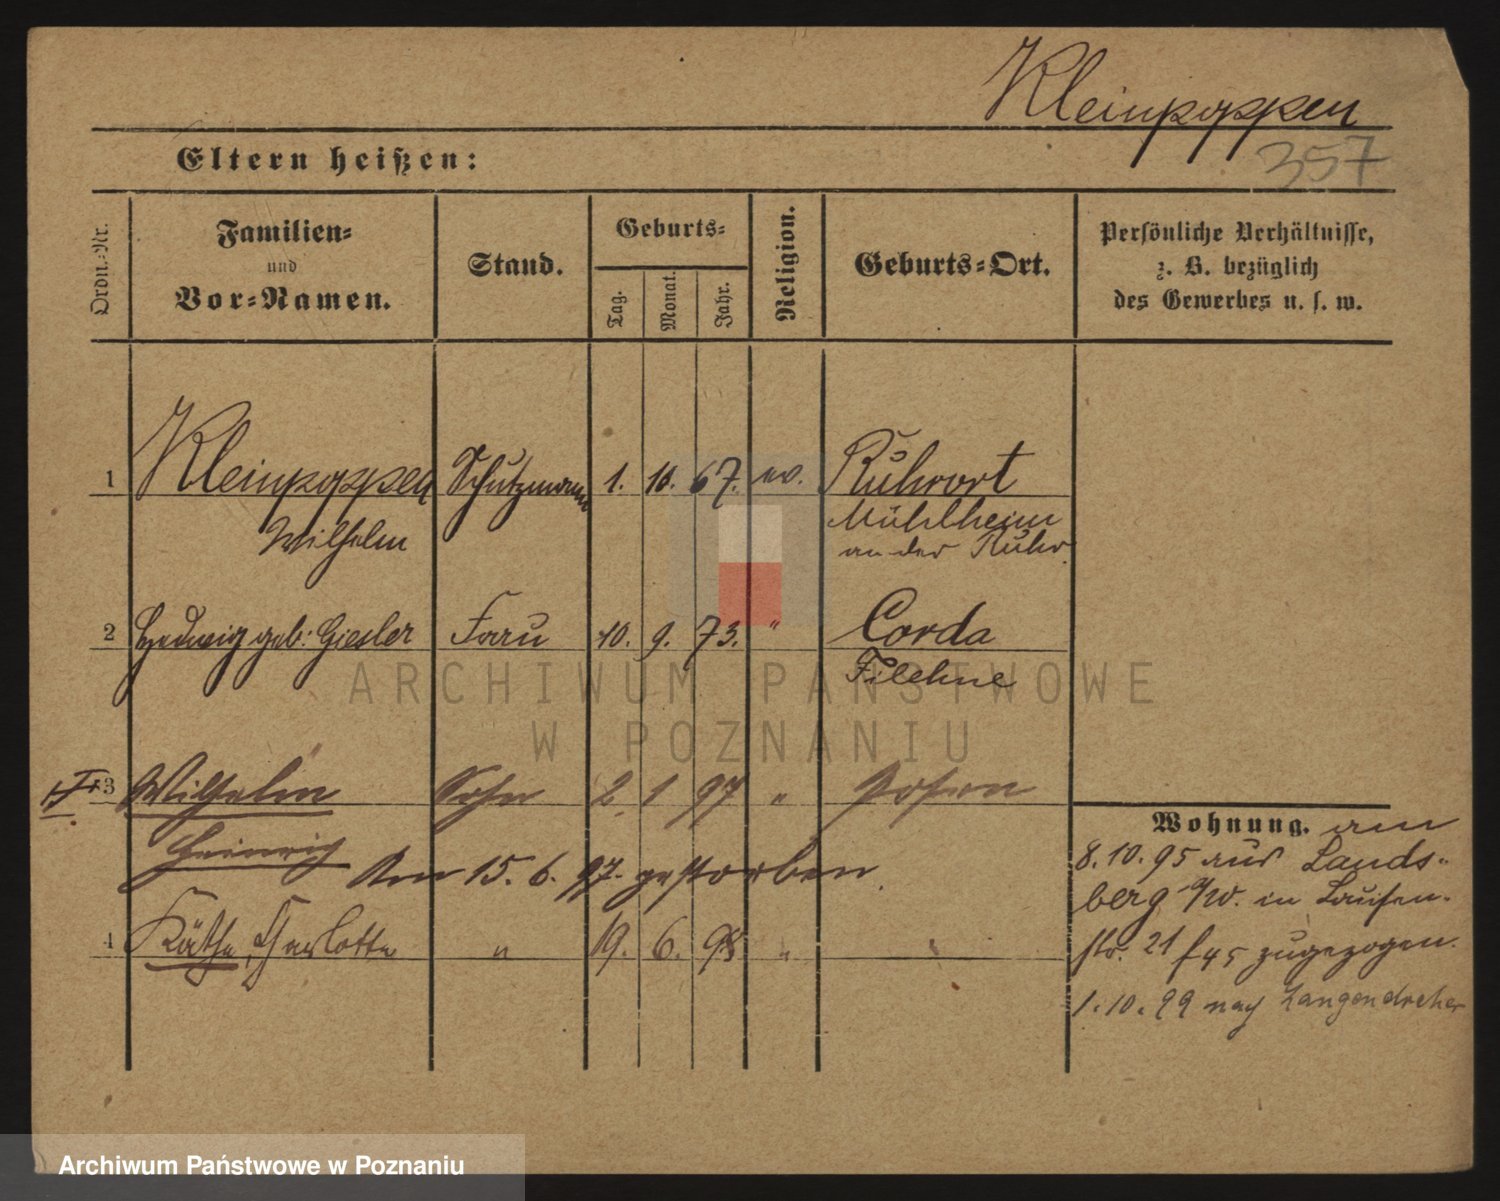 Kleinpoppen
357
Eltern heißen:
Ordn.-Nr.
Familien-
und
Vor-Namen.
Stand.
Geburts-
Tag.
Monat.
Jahr.
Religion.
Geburts-Ort.
Persönliche Verhältnisse,
z. B. bezüglich
des Gewerbes u. s. w.
1 Kleinpoppen Schutzmann 1. 10. 67. ev. Ruhrort
Wilhelm Mühlheim
an der Ruhr.
2 Hedwig geb: Giesler Frau 10. 9. 73. " Corda
Filehne
3 Wilhelm Sohn 2 1 97 " Posen
Heinrich Am 15. 6. 97. gestorben.
4 Käthe, Charlotte " 19. 6. 98 "
Wohnung. am
8.10.95 aus Lands-
berg a/W. in Louisen-
str. 21 zugezogen.
1.10.99 nach Langendreher
ARCHIWUM PAŃSTWOWE
W POZNANIU
Archiwum Państwowe w Poznaniu